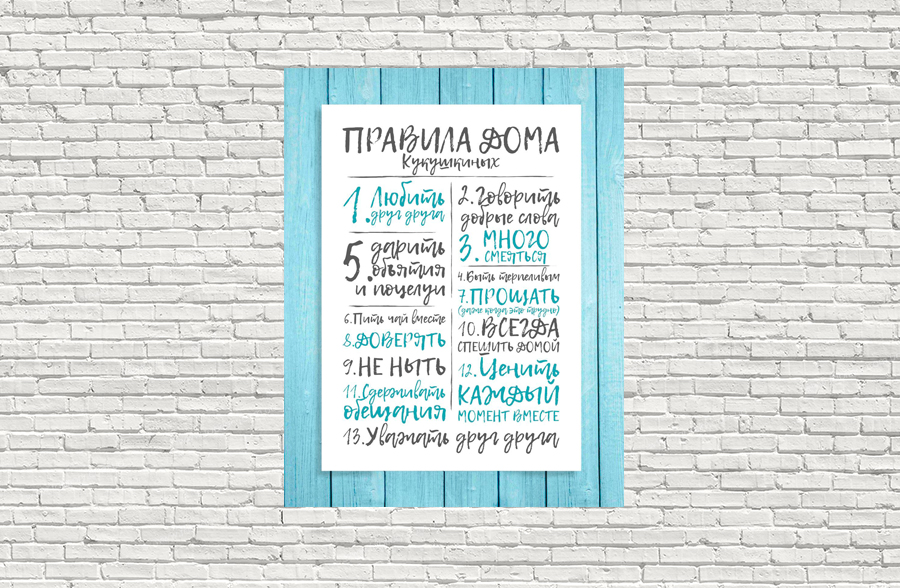 ПРАВИЛА ДОМА
Кукушкиных
1. Любить
друг друга
2. Говорить
добрые слова
3. МНОГО
СМЕЯТЬСЯ
4. Быть терпеливым
5. дарить
объятия
и поцелуи
6. Пить чай вместе
7. ПРОЩАТЬ
(даже когда это трудно)
8. ДОВЕРЯТЬ
9. НЕ НЫТЬ
10. ВСЕГДА
СПЕШИТЬ ДОМОЙ
11. Сдерживать
обещания
12. Ценить
КАЖДЫЙ
МОМЕНТ ВМЕСТЕ
13. Уважать друг друга